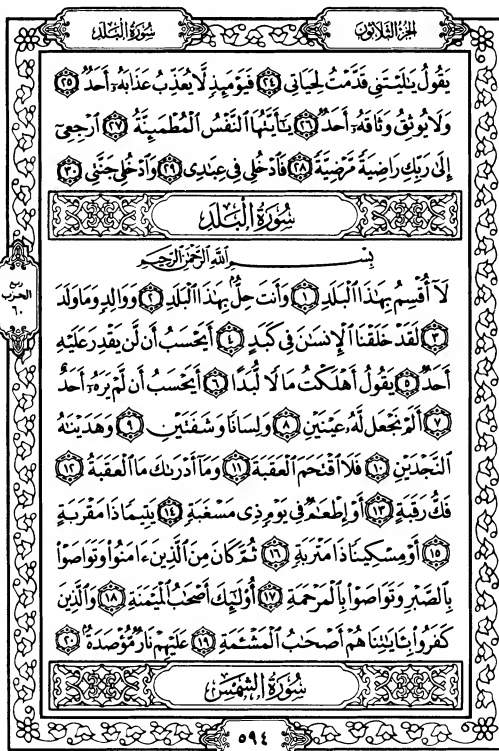 سُورَةُ الْبَلَد
الجُزءُ الثَّلَاثُون
يَقُولُ يَٰلَيْتَنِى قَدَّمْتُ لِحَيَاتِى ٢٤ فَيَوْمَئِذٍ لَّا يُعَذِّبُ عَذَابَهُۥٓ أَحَدٌ ٢٥
وَلَا يُوثِقُ وَثَاقَهُۥٓ أَحَدٌ ٢٦ يَٰٓأَيَّتُهَا ٱلنَّفْسُ ٱلْمُطْمَئِنَّةُ ٢٧ ٱرْجِعِىٓ
إِلَىٰ رَبِّكِ رَاضِيَةً مَّرْضِيَّةً ٢٨ فَٱدْخُلِى فِى عِبَٰدِى ٢٩ وَٱدْخُلِى جَنَّتِى ٣٠
سُورَةُ الْبَلَد
بِسْمِ ٱللَّهِ ٱلرَّحْمَٰنِ ٱلرَّحِيمِ
لَآ أُقْسِمُ بِهَٰذَا ٱلْبَلَدِ ١ وَأَنتَ حِلٌّۢ بِهَٰذَا ٱلْبَلَدِ ٢ وَوَالِدٍ وَمَا وَلَدَ
٣ لَقَدْ خَلَقْنَا ٱلْإِنسَٰنَ فِى كَبَدٍ ٤ أَيَحْسَبُ أَن لَّن يَقْدِرَ عَلَيْهِ
أَحَدٌ ٥ يَقُولُ أَهْلَكْتُ مَالًا لُّبَدًا ٦ أَيَحْسَبُ أَن لَّمْ يَرَهُۥٓ أَحَدٌ
٧ أَلَمْ نَجْعَل لَّهُۥ عَيْنَيْنِ ٨ وَلِسَانًا وَشَفَتَيْنِ ٩ وَهَدَيْنَٰهُ
ٱلنَّجْدَيْنِ ١٠ فَلَا ٱقْتَحَمَ ٱلْعَقَبَةَ ١١ وَمَآ أَدْرَىٰكَ مَا ٱلْعَقَبَةُ ١٢
فَكُّ رَقَبَةٍ ١٣ أَوْ إِطْعَٰمٌ فِى يَوْمٍ ذِى مَسْغَبَةٍ ١٤ يَتِيمًا ذَا مَقْرَبَةٍ
١٥ أَوْ مِسْكِينًا ذَا مَتْرَبَةٍ ١٦ ثُمَّ كَانَ مِنَ ٱلَّذِينَ ءَامَنُوا۟ وَتَوَاصَوْا۟
بِٱلصَّبْرِ وَتَوَاصَوْا۟ بِٱلْمَرْحَمَةِ ١٧ أُو۟لَٰٓئِكَ أَصْحَٰبُ ٱلْمَيْمَنَةِ ١٨ وَٱلَّذِينَ
كَفَرُوا۟ بِـَٔايَٰتِنَا هُمْ أَصْحَٰبُ ٱلْمَشْـَٔمَةِ ١٩ عَلَيْهِمْ نَارٌ مُّؤْصَدَةٌۢ ٢٠
سُورَةُ الشَّمْس
ربع
الحزب
٦٠
٥٩٤